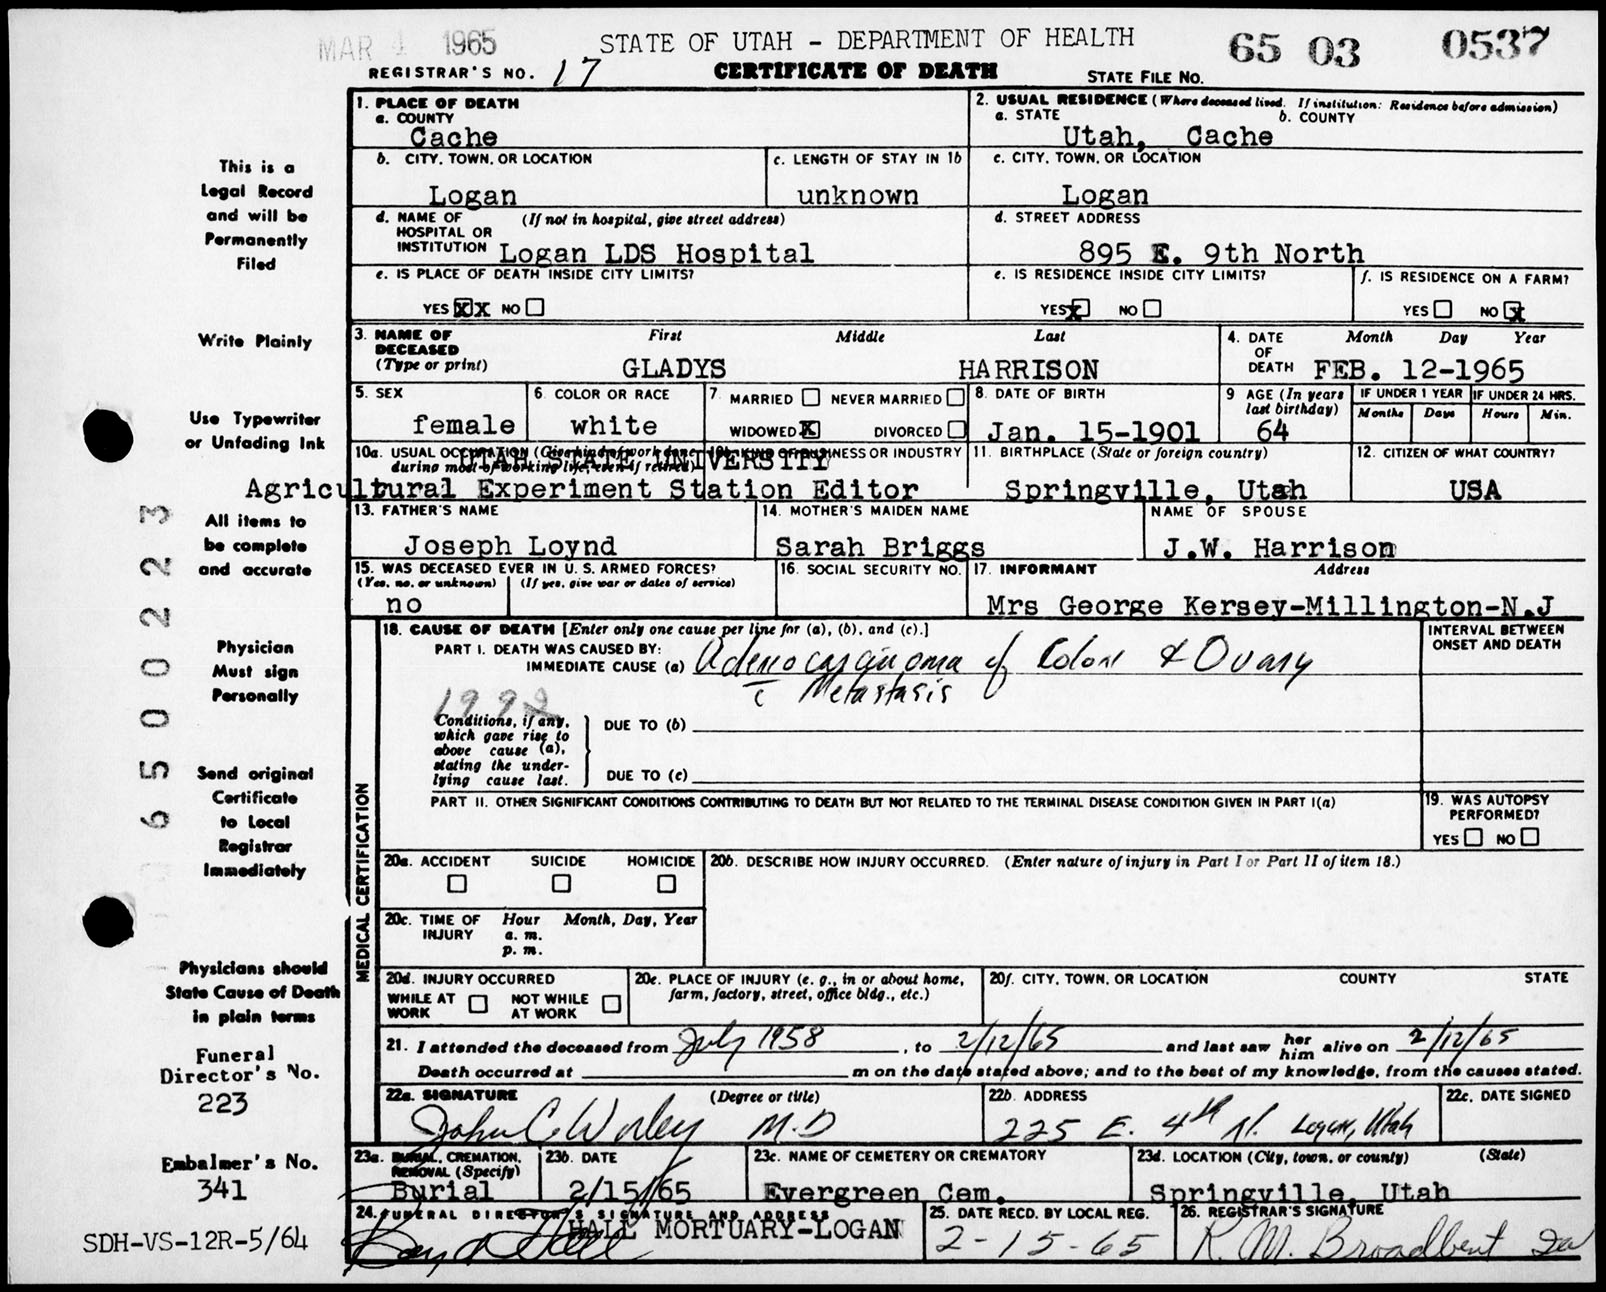 MAR 4 1965
STATE OF UTAH - DEPARTMENT OF HEALTH
65 03 0537
REGISTRAR'S NO. 17
CERTIFICATE OF DEATH
STATE FILE NO.
1. PLACE OF DEATH
a. COUNTY
Cache
2. USUAL RESIDENCE (Where deceased lived. If institution: Residence before admission)
a. STATE b. COUNTY
Utah, Cache
b. CITY, TOWN, OR LOCATION
Logan
c. LENGTH OF STAY IN 1b
unknown
c. CITY, TOWN, OR LOCATION
Logan
d. NAME OF HOSPITAL OR INSTITUTION (If not in hospital, give street address)
Logan LDS Hospital
d. STREET ADDRESS
895 E. 9th North
e. IS PLACE OF DEATH INSIDE CITY LIMITS?
YES XX NO
e. IS RESIDENCE INSIDE CITY LIMITS?
YES X NO
f. IS RESIDENCE ON A FARM?
YES NO X
3. NAME OF DECEASED (Type or print)
First Middle Last
GLADYS HARRISON
4. DATE OF DEATH Month Day Year
FEB. 12-1965
5. SEX
female
6. COLOR OR RACE
white
7. MARRIED NEVER MARRIED
WIDOWED X DIVORCED
8. DATE OF BIRTH
Jan. 15-1901
9 AGE (In years last birthday)
64
IF UNDER 1 YEAR IF UNDER 24 HRS.
Months Days Hours Min.
10a. USUAL OCCUPATION (Give kind of work done during most of working life, even if retired)
10b. KIND OF BUSINESS OR INDUSTRY
UTAH STATE UNIVERSITY
Agricultural Experiment Station Editor
11. BIRTHPLACE (State or foreign country)
Springville, Utah
12. CITIZEN OF WHAT COUNTRY?
USA
13. FATHER'S NAME
Joseph Loynd
14. MOTHER'S MAIDEN NAME
Sarah Briggs
NAME OF SPOUSE
J.W. Harrison
15. WAS DECEASED EVER IN U. S. ARMED FORCES?
(Yes, no, or unknown) (If yes, give war or dates of service)
no
16. SOCIAL SECURITY NO.
17. INFORMANT Address
Mrs George Kersey-Millington-N.J
MEDICAL CERTIFICATION
18. CAUSE OF DEATH [Enter only one cause per line for (a), (b), and (c).]
INTERVAL BETWEEN ONSET AND DEATH
PART I. DEATH WAS CAUSED BY:
IMMEDIATE CAUSE (a) Adenocarcinoma of Colon & Ovary
c Metastasis
Conditions, if any, which gave rise to above cause (a), stating the underlying cause last.
DUE TO (b)
DUE TO (c)
PART II. OTHER SIGNIFICANT CONDITIONS CONTRIBUTING TO DEATH BUT NOT RELATED TO THE TERMINAL DISEASE CONDITION GIVEN IN PART I(a)
19. WAS AUTOPSY PERFORMED?
YES NO
20a. ACCIDENT SUICIDE HOMICIDE
20b. DESCRIBE HOW INJURY OCCURRED. (Enter nature of injury in Part I or Part II of item 18.)
20c. TIME OF INJURY Hour Month, Day, Year
a. m.
p. m.
20d. INJURY OCCURRED
WHILE AT WORK NOT WHILE AT WORK
20e. PLACE OF INJURY (e. g., in or about home, farm, factory, street, office bldg., etc.)
20f. CITY, TOWN, OR LOCATION COUNTY STATE
21. I attended the deceased from July 1958, to 2/12/65 and last saw her him alive on 2/12/65
Death occurred at m on the date stated above; and to the best of my knowledge, from the causes stated.
22a. SIGNATURE (Degree or title)
John C. Worley M.D
22b. ADDRESS
225 E. 4th N. Logan, Utah
22c. DATE SIGNED
23a. BURIAL, CREMATION, REMOVAL (Specify)
Burial
23b. DATE
2/15/65
23c. NAME OF CEMETERY OR CREMATORY
Evergreen Cem.
23d. LOCATION (City, town, or county) (State)
Springville, Utah
24. FUNERAL DIRECTOR'S SIGNATURE AND ADDRESS
HALL MORTUARY-LOGAN
25. DATE RECD. BY LOCAL REG.
2-15-65
26. REGISTRAR'S SIGNATURE
R. M. Broadbent
This is a
Legal Record
and will be
Permanently
Filed
Write Plainly
Use Typewriter
or Unfading Ink
All items to
be complete
and accurate
Physician
Must sign
Personally
Send original
Certificate
to Local
Registrar
Immediately
Physicians should
State Cause of Death
in plain terms
Funeral
Director's No.
223
Embalmer's No.
341
SDH-VS-12R-5/64
6500223